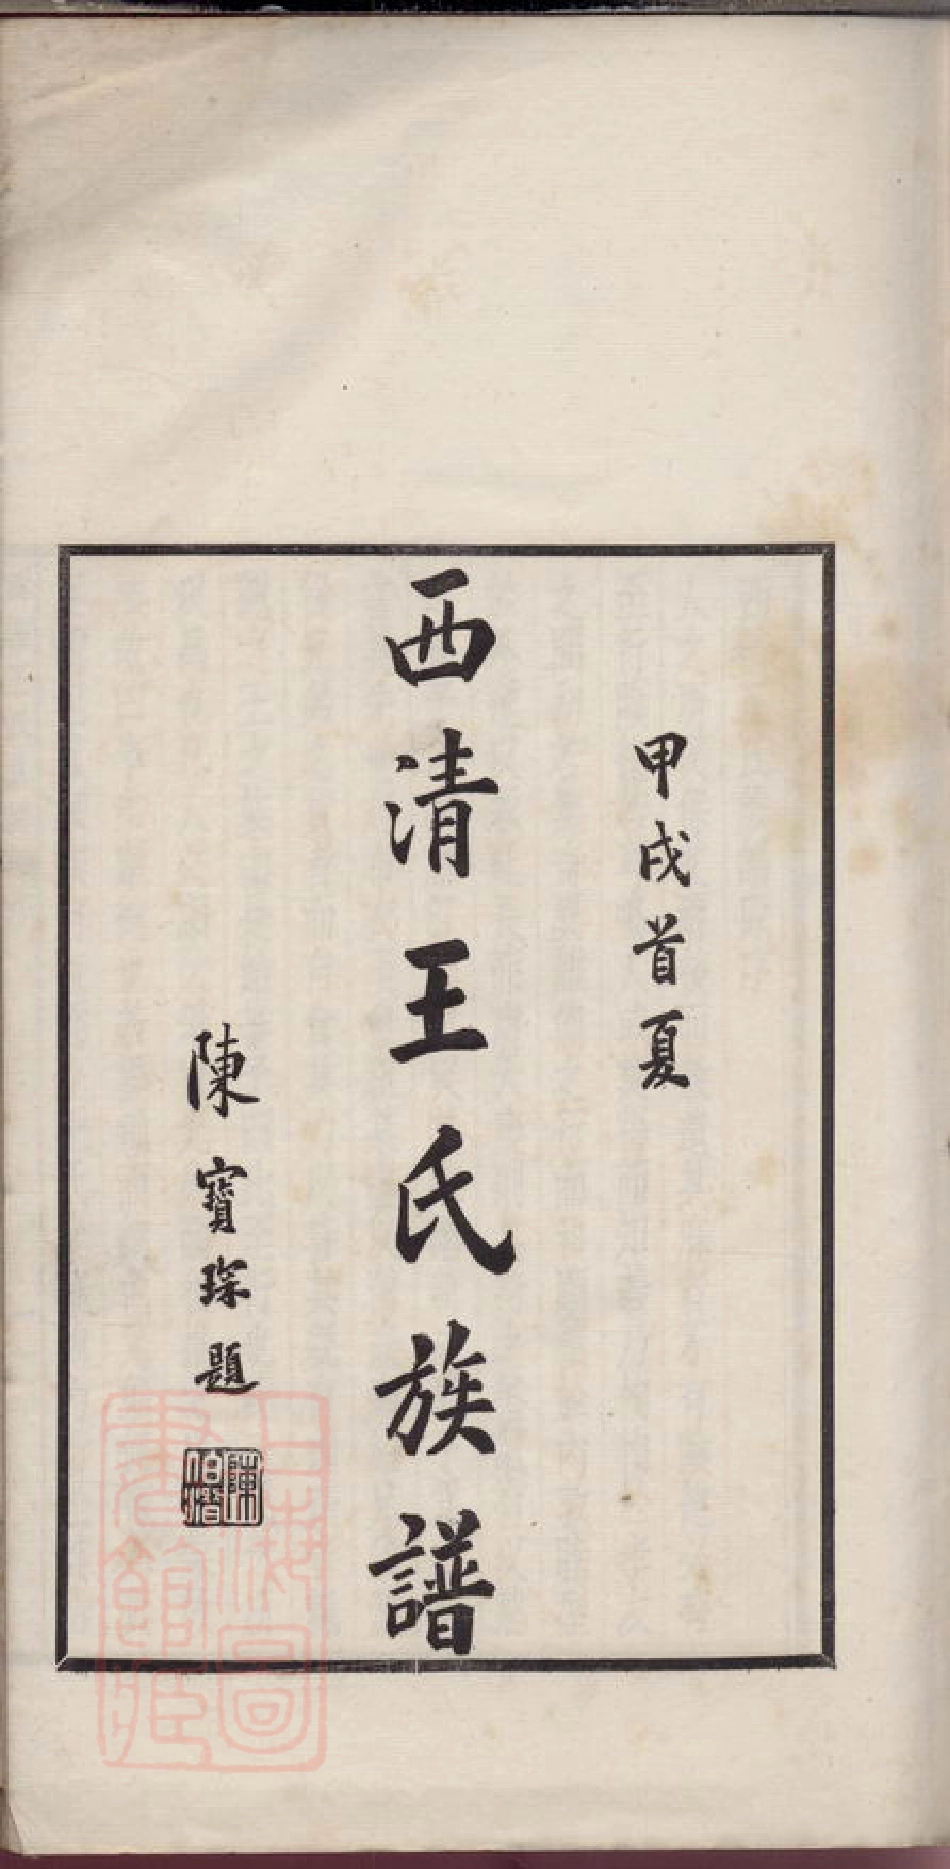 甲戌首夏
西清王氏族譜
陳寶琛題
陳伯潛
上海圖書館藏